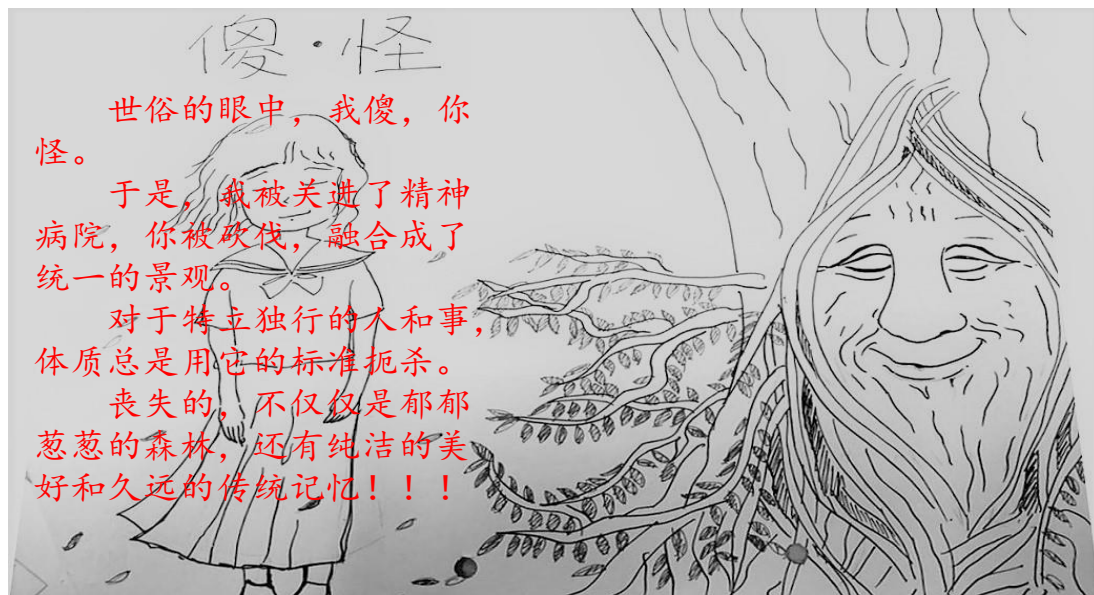 傻·怪
世俗的眼中，我傻，你
怪。
于是，我被关进了精神
病院，你被砍伐，融合成了
统一的景观。
对于特立独行的人和事，
体质总是用它的标准扼杀。
丧失的，不仅仅是郁郁
葱葱的森林，还有纯洁的美
好和久远的传统记忆！！！